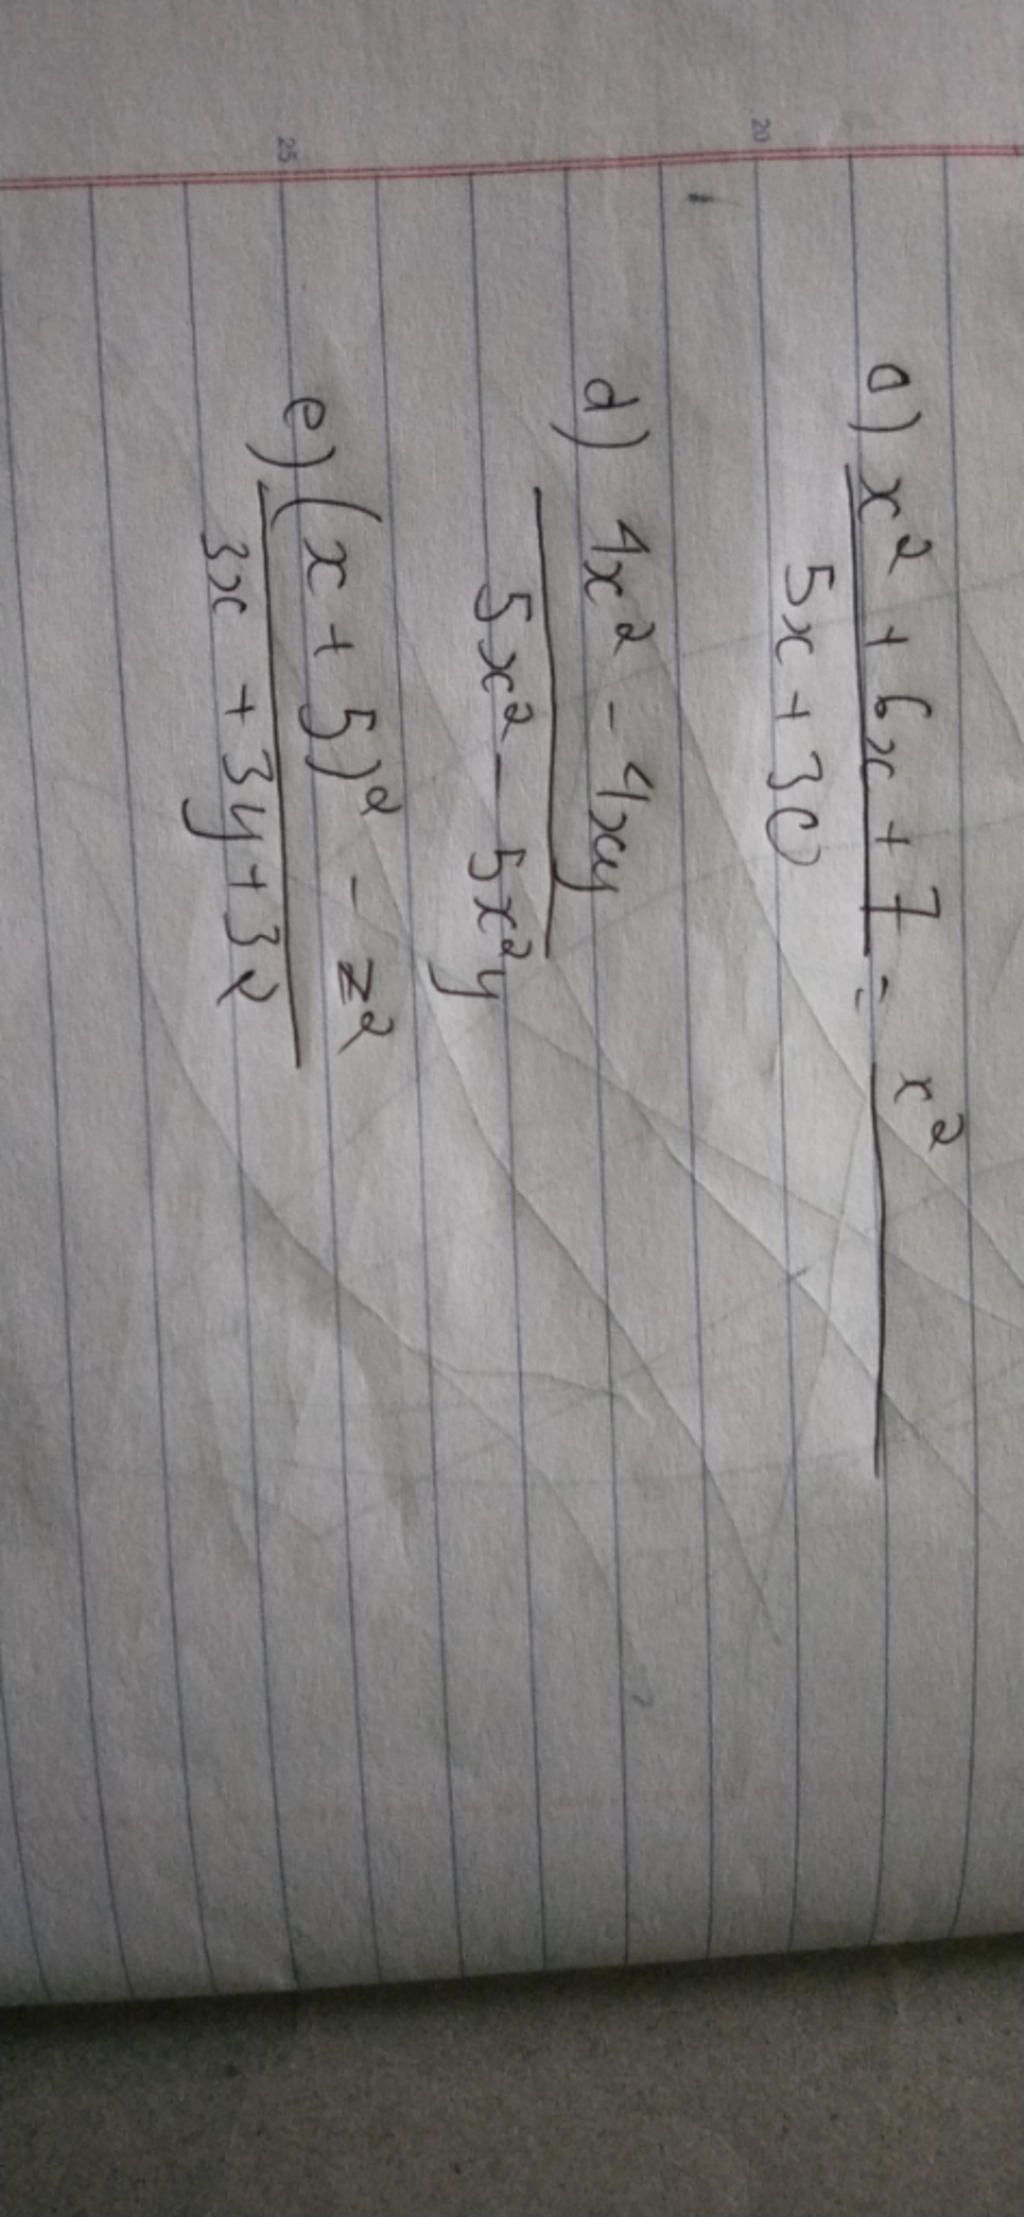 20
a) x² + 6x + 7 = x²
5x + 30
d) 4x² - 4xy
5x² - 5x²y
25
e) (x + 5)² - z²
3x + 3y + 3z